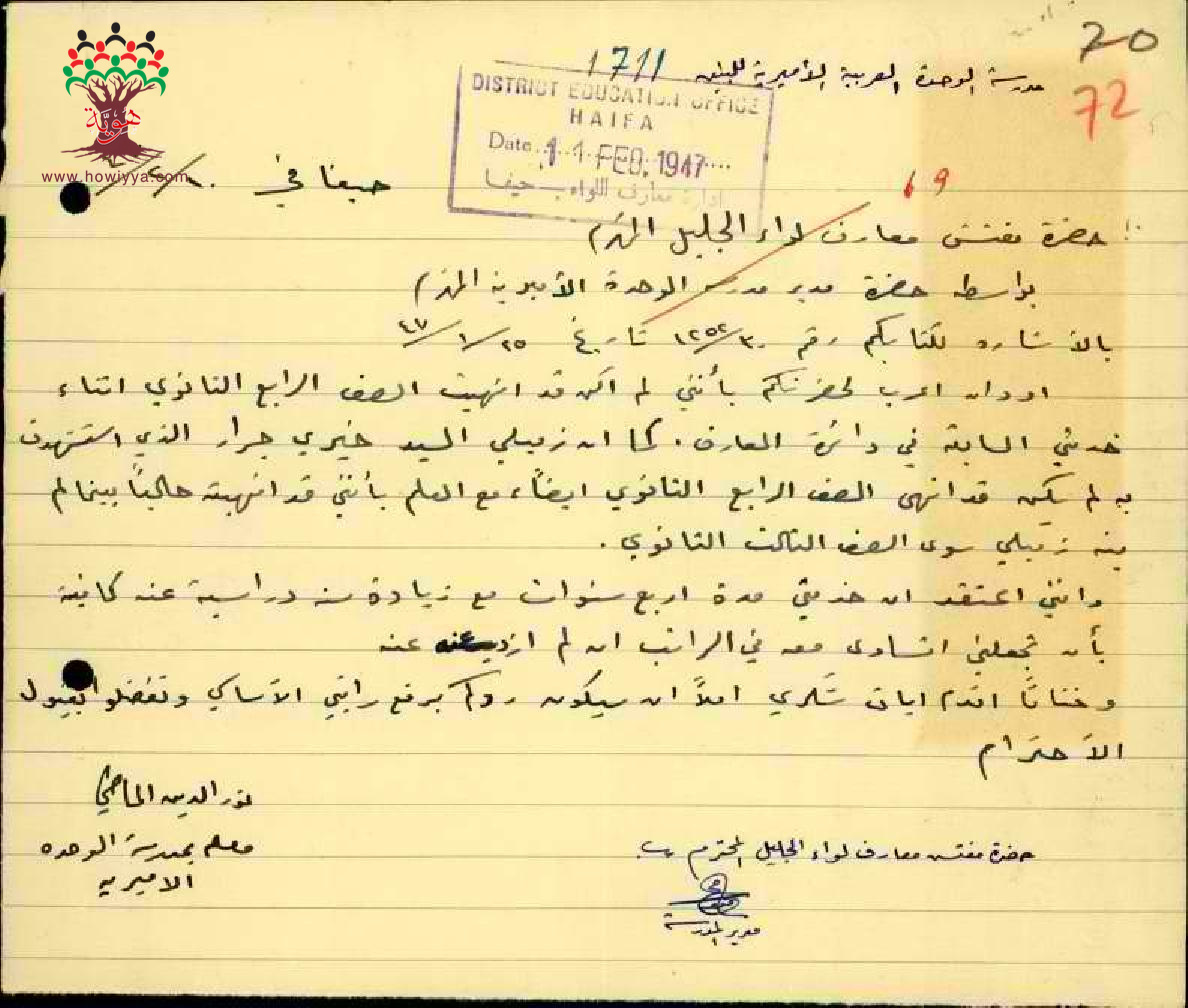 20
72
مدرسة الوحدة العربية الأميرية للبنين
1711
DISTRICT EDUCATION OFFICE
HAIFA
Date 11 FEB. 1947
ادارة معارف اللواء - حيفا
69
هوية
www.howiyya.com
حيفا في
حضرة مفتش معارف لواء الجليل المحترم
بواسطه حضرة مدير مدرسة الوحدة الأميرية المحترم
بالأشاره لكتابكم رقم ١٢٥٢/٣٠ تاريخ ٢٥/١/٤٧
اود ان اعرب لحضرتكم بأنني لم اكن قد انهيت الصف الرابع الثانوي اثناء
خدمتي السابقة في دائرة المعارف. كما ان زميلي السيد خيري جرار الذي استشهدت
به لم يكن قد انهى الصف الرابع الثانوي ايضاً، مع العلم بأنني قد انهيته حالياً بينما لم
ينه زميلي سوى الصف الثالث الثانوي.
وانني اعتقد ان خدمتي مدة اربع سنوات مع زيادة سنه دراسية عنه كافية
بأن تجعلني اتساوى معه في الراتب ان لم ازد عنه
وختاماً اقدم ايات شكري املاً ان سيكون ردكم برفع راتبي الاساسي وتفضلوا بقبول
الاحترام
نور الدين الماضي
معلم بمدرسة الوحده
الاميريه
حضرة مفتش معارف لواء الجليل المحترم
مدير المدرسة